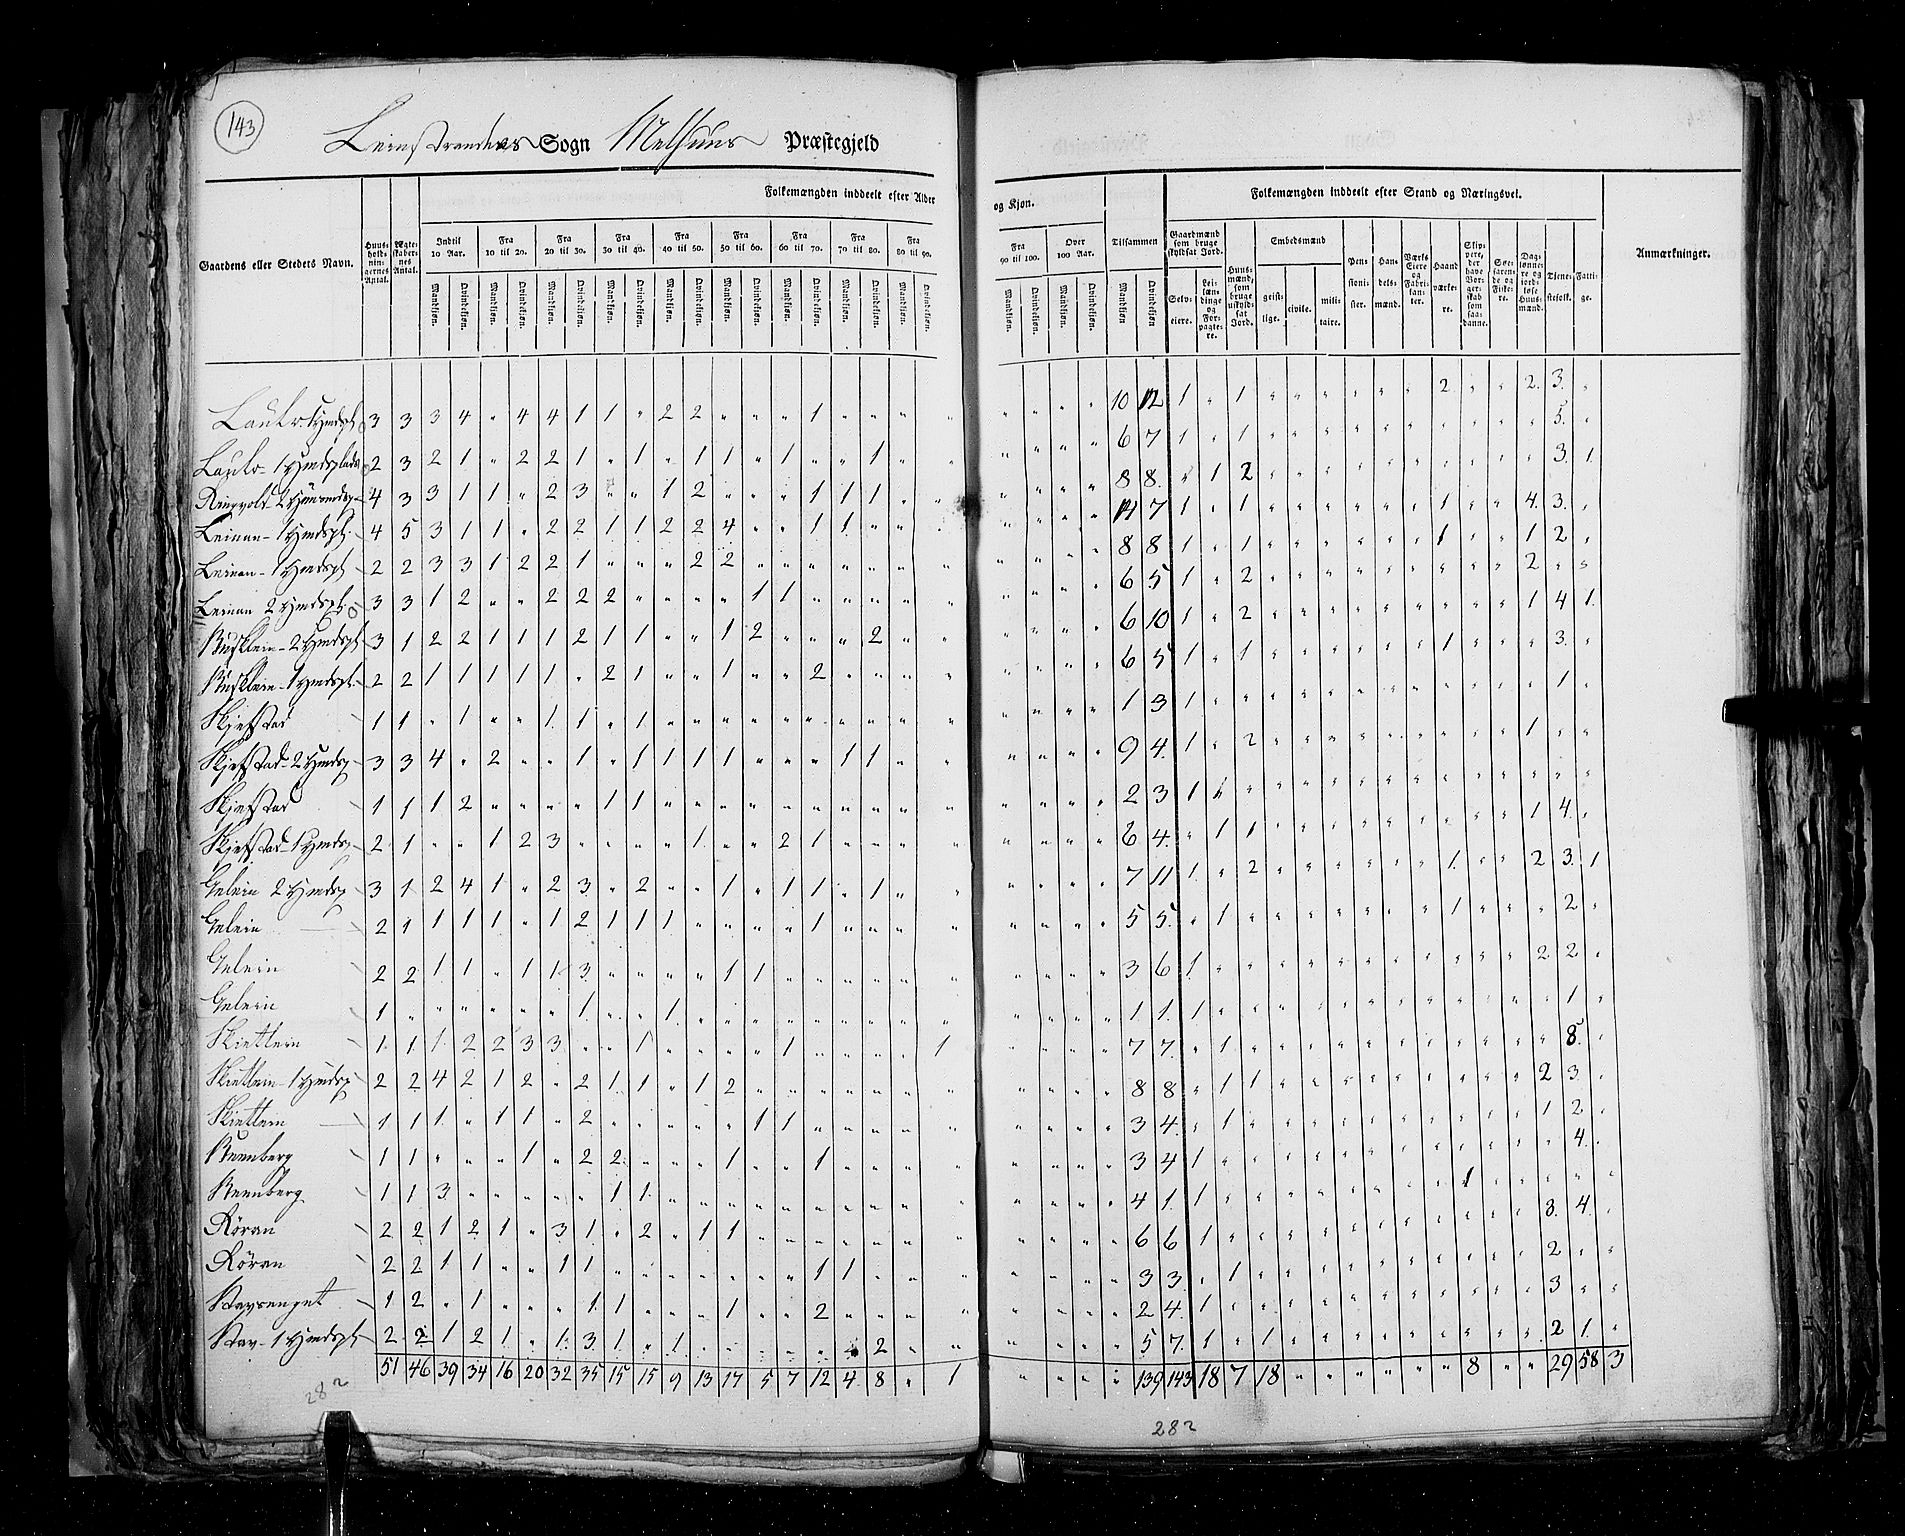 143
Leinstrandens Sogn Melhuus Præstegjeld
Folkemængden inddeelt efter Alder
og Kjøn.
Folkemængden inddeelt efter Stand og Næringsvei.
Gaardens eller Stedets Navn.
Huus-holdnin-gernes Antal.
Ægte-skaber-nes Antal.
Indtil 10 Aar.
Fra 10 til 20.
Fra 20 til 30.
Fra 30 til 40.
Fra 40 til 50.
Fra 50 til 60.
Fra 60 til 70.
Fra 70 til 80.
Fra 80 til 90.
Fra 90 til 100.
Over 100 Aar.
Tilsammen
Mandkjøn. Qvindekjøn.
Gaardmænd som bruge skyldsat Jord.
Selv-eiere.
Lei-læn-dinge og For-pagte-re.
Huus-mænd, som bruge uskyld-sat Jord.
Embedsmænd
geist-lige.
civile.
mili-taire.
Pen-sioni-ster.
Han-dels-mænd.
Værks-Eiere og Fabri-kan-ter.
Haand-værke-re.
Skip-pere, der have Bor-ger-skab som saa-danne.
Søe-farende og Fiske-re.
Dag-lønne-re og jord-løse Huus-mænd.
Tjene-stefolk.
Fatti-ge.
Anmærkninger.
3 3 3 4 " 4 4 1 1 " 2 2 " " " 1 " " " " " " " " 10 12 1 " 1 " " " " " " 2 " " 2 3 "
2 3 2 1 " 2 2 1 " 1 " 1 1 " 1 " " 1 " " " " " " 6 7 1 " 1 " " " " " " " " " " 5 "
4 3 3 1 1 " 2 3 " " 1 2 " " " 1 1 1 " " " " " " 8 8 " 1 2 " " " " " " " " " " 3 1
Leinan - 1 Hmdspl. 4 5 3 1 1 " 2 2 1 1 2 2 4 " " 1 1 " " " " " " " 14 7 1 " 1 " " " " " " 1 " " 4 3 "
Leinan - 1 Hmdspl 2 2 3 3 1 2 2 1 " " " 2 2 " " " " " " " " " " " 8 8 1 " 1 " " " " " " 1 " " 1 2 "
Leinan 2 Hmdspl. 3 3 1 2 " " 2 2 2 " " " " 1 1 " " " " " " " " " 6 5 1 " 2 " " " " " " " " " 2 " "
2 Hmdspl 3 1 2 2 1 1 1 2 1 1 " " 1 2 " " " 2 " " " " " " 6 10 1 " 2 " " " " " " " " " 1 4 1
1 Hmdspl. 2 2 1 1 1 1 1 " 2 1 " " 1 " " 2 " " " " " " " " 6 5 1 " 1 " " " " " " 1 " " " 3 "
Skjefstad 1 1 " 1 " " 1 1 " 1 " " " " " " " " " " " " " " 1 3 1 " " " " " " " " " " " " 1 "
Skjefstad - 2 Hmdsp 3 3 4 " 2 " " 1 " 1 1 1 1 " " " 1 1 " " " " " " 9 4 1 " 2 " " " " " " " " " 1 " "
Skjefstad 1 1 1 2 " " " " 1 1 " " " " " " " " " " " " " " 2 3 1 " " " " " " " " " " " " " "
Skjefstad - 1 Hmdsp 2 1 " " 1 2 3 " " " " 1 " " 2 1 " " " " " " " " 6 4 " 1 1 " " " " " " " " " 1 4 "
2 Hmdsp 3 1 2 4 1 " 2 3 " 2 " " 1 " 1 1 " 1 " " " " " " 7 11 1 " 2 " " " " " " 1 " " 2 3 1
2 1 1 1 1 " 1 2 1 1 1 " " " " 1 " " " " " " " " 5 5 " 1 " " " " " " " 1 " " " 2 "
2 2 1 1 " 1 1 3 " " " " 1 1 " " " " " " " " " " 3 6 1 " " " " " " " " " " " 2 2 "
1 " " " " " " 1 " " 1 " " " " " " " " " " " " " 1 1 1 " " " " " " " " " " " " 1 "
Skiettlein 1 1 1 2 2 3 3 " " 1 " " " " 1 " " " " 1 " " " " 7 7 " 1 " " " " " " " " " " " 8 "
Skiettlein - 1 Hmdsp 2 2 4 2 1 2 " 2 1 1 " 1 2 " " " " " " " " " " " 8 8 " 1 1 " " " " " " " " " 2 3 "
Skiettlein 1 1 1 " 1 1 " 2 " " " " " 1 1 " " " " " " " " " 3 4 " 1 " " " " " " " " " " 1 2 "
1 1 " " " 1 " 2 2 " " " 1 " " 1 " " " " " " " " 3 4 1 " " " " " " " " " " " " 4 "
1 1 3 " " " " " 1 1 " " " " " " " " " " " " " " 4 1 1 " " " " " " " " 1 " " " " "
Røran 2 2 1 2 1 " 3 1 " 2 " 1 1 " " " " " " " " " " " 6 6 1 " " " " " " " " " " " 3 4 "
Røran 2 2 1 1 " " 1 1 " " " " " " " 1 1 " " " " " " " 3 3 " 1 " " " " " " " " " " 2 " "
1 2 " 1 " " " 1 1 " " " 1 " " 2 " " " " " " " " 2 4 1 " " " " " " " " " " " 3 " "
1 Hmdspl. 2 2 1 2 1 " 1 3 1 " 1 " " " " " " 2 " " " " " " 5 7 1 " 1 " " " " " " " " " 2 1 "
51 46 39 34 16 20 32 35 15 15 9 13 17 5 7 12 4 8 " 1 " " " " 139 143 18 7 18 " " " " " " 8 " " 29 58 3
282
282